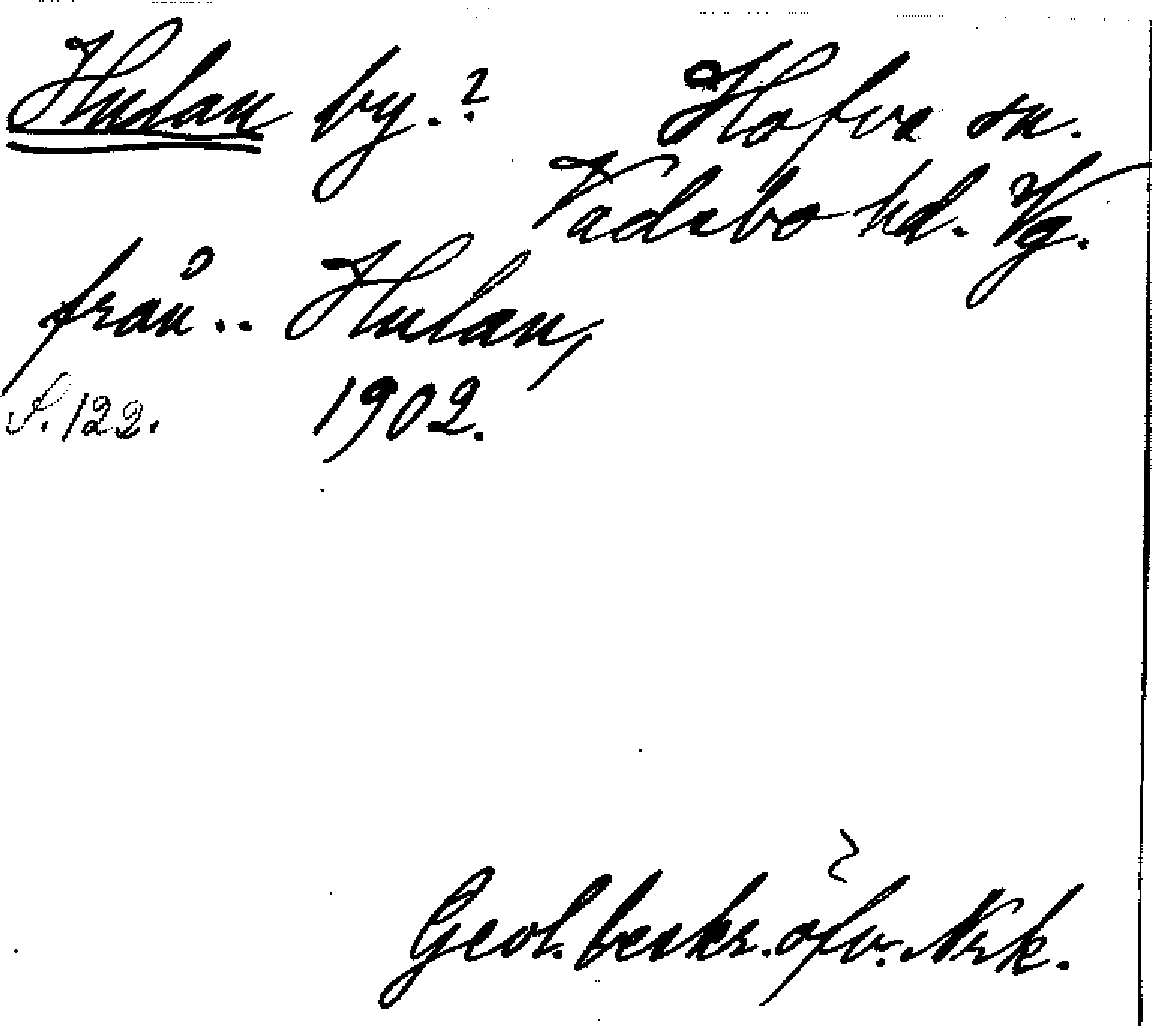 Hulan by.? Hofva sn.
Vadsbo hd. Vg.
från.. Hulan,
S. 122. 1902.
Geol. beskr. öfv. Nrk.